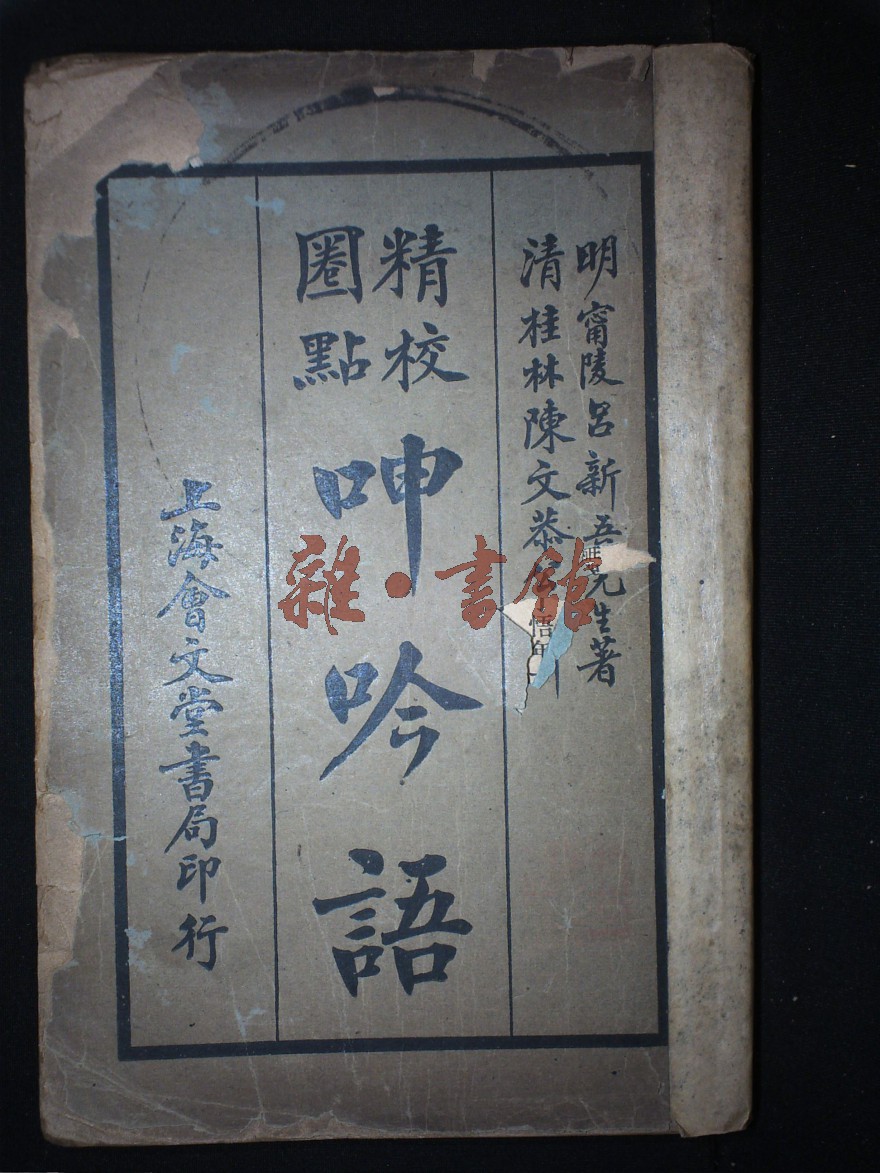 明甯陵呂新吾先生著
清桂林陳文恭
精校
圈點
呻吟語
上海會文堂書局印行
雜·書館